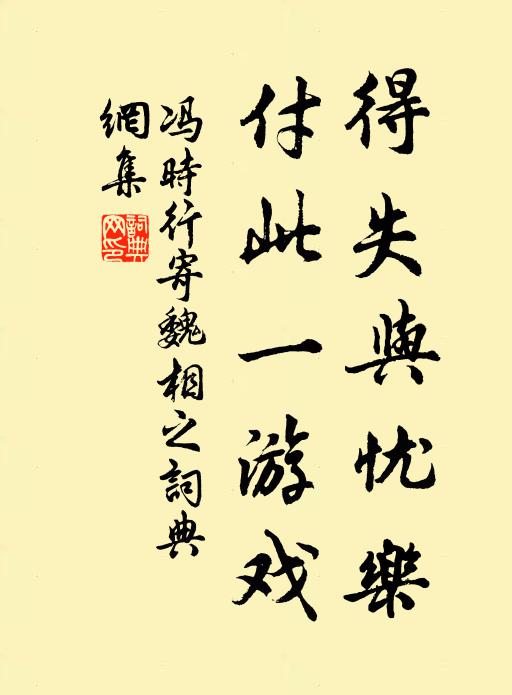 得失與忧樂
付此一游戏
冯時行寄魏相之詞典
網集
詞典
网印